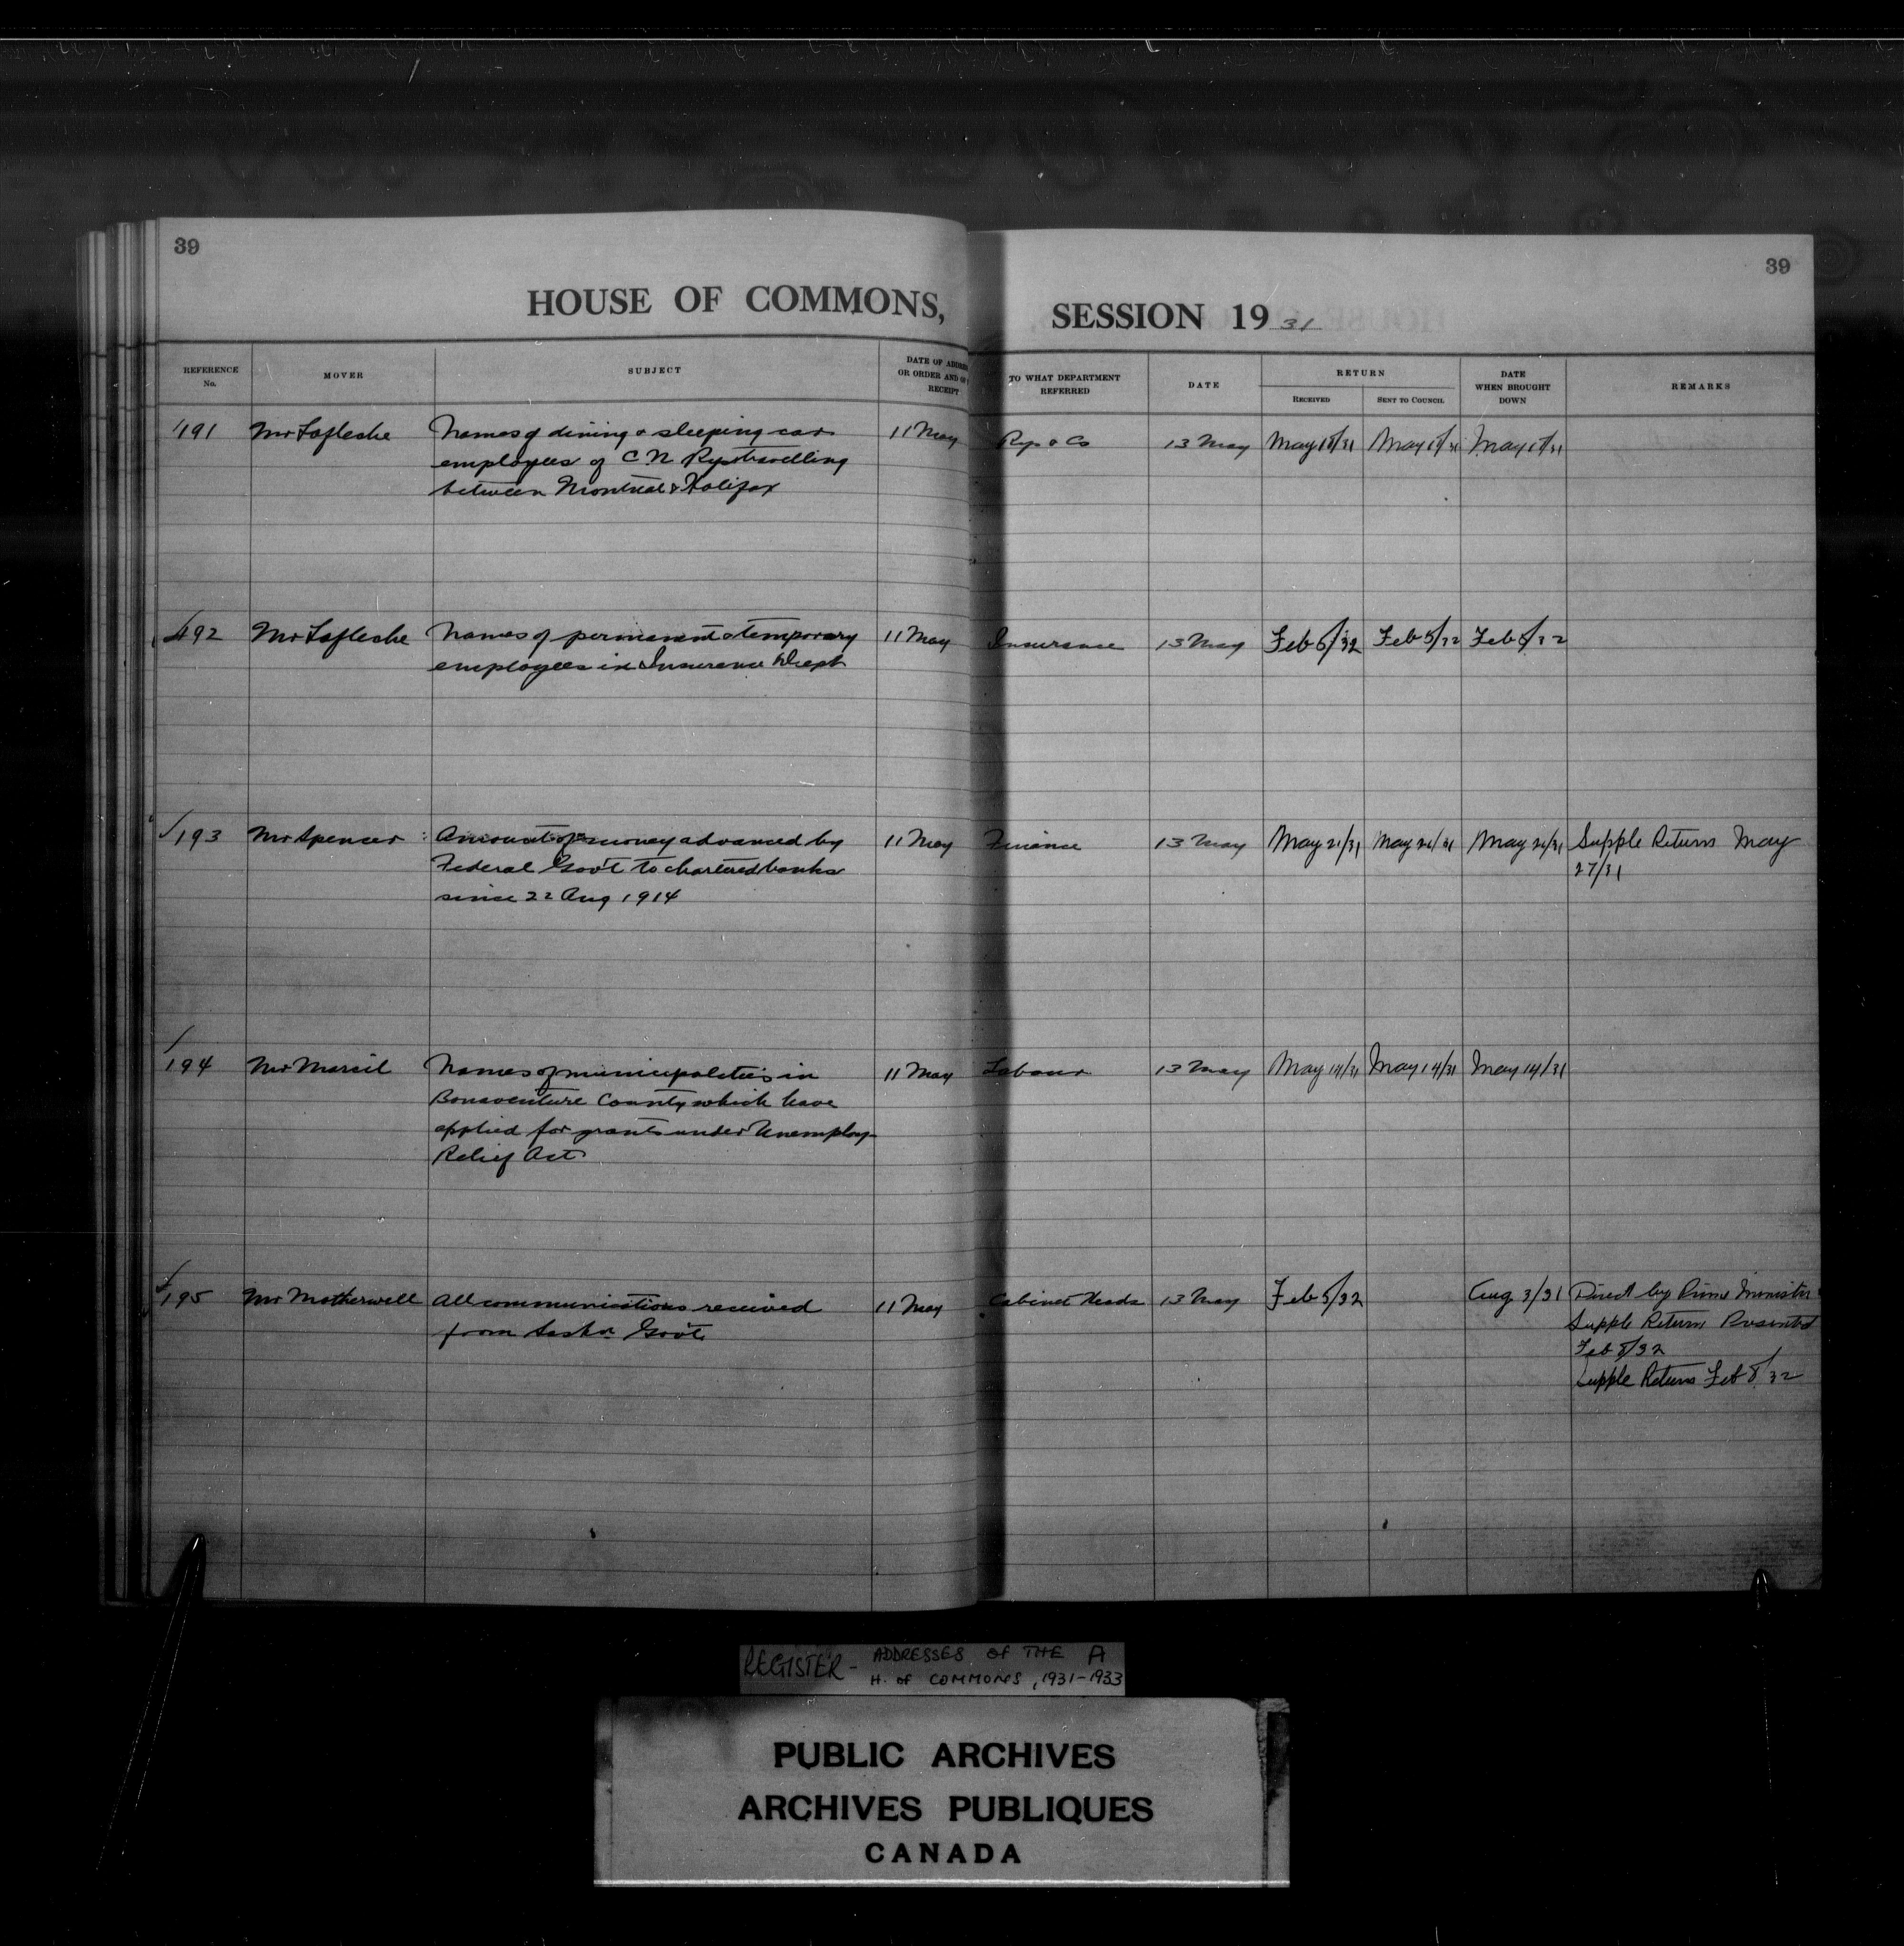 39
39
HOUSE OF COMMONS, SESSION 19 31
REFERENCE No.
MOVER
SUBJECT
DATE OF ADDRESS OR ORDER AND OF RECEIPT
TO WHAT DEPARTMENT REFERRED
DATE
RETURN
RECEIVED
SENT TO COUNCIL
DATE WHEN BROUGHT DOWN
REMARKS
191 Mr Lafleche Names of dining & sleeping car 11 May Rys & Cs 13 May May 18/31 May 18/31 May 18/31
employees of C N Rys travelling
between Montreal & Halifax
192 Mr Lafleche Names of permanent & temporary 11 May Insurance 13 May Feb 5/32 Feb 5/32 Feb 8/32
employees in Insurance Dept
193 Mr Spencer Amount of money advanced by 11 May Finance 13 May May 21/31 May 21/31 May 21/31 Supple Return May
Federal Gov't to chartered banks 27/31
since 22 Aug 1914
194 Mr Marcil Names of municipalities in 11 May Labour 13 May May 14/31 May 14/31 May 14/31
Bonaventure County which have
applied for grants under Unemploy-
Relief Act
195 Mr Motherwell All communications received 11 May Cabinet Heads 13 May Feb 5/32 Aug 3/31 Direct by Prime Minister
from Sask Gov't Supple Return Presented
Feb 8/32
Supple Return Feb 8/32
REGISTER - ADDRESSES OF THE A
H. of COMMONS, 1931-1933
PUBLIC ARCHIVES
ARCHIVES PUBLIQUES
CANADA